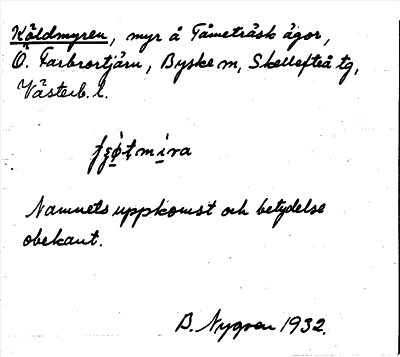 Köldmyren, myr å Tåmeträsk ägor,
Ö. Farbrortjärn, Byske sn, Skellefteå tg,
Västerb. l.
Namnets uppkomst och betydelse
obekant.
B. Nygren 1932.